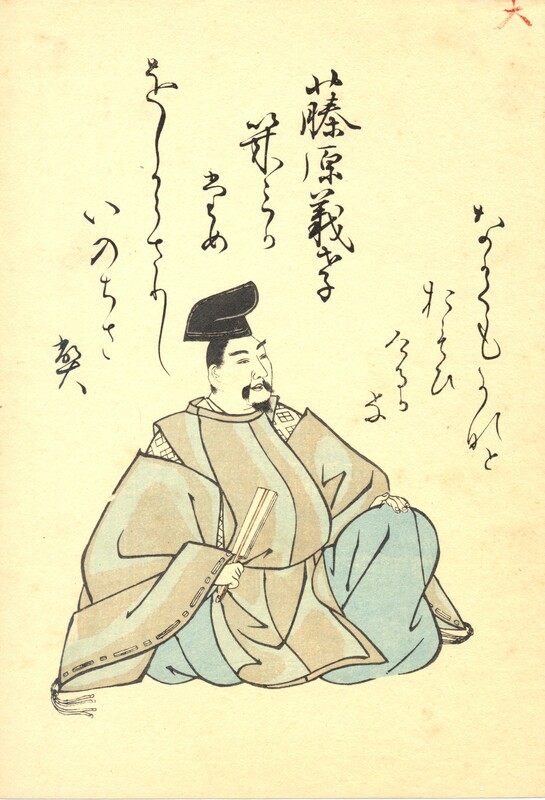 藤原義孝
きみか
ため
をしからさりし
いのちさ
へ
なかくもかなと
おもひ
けるか
な
大